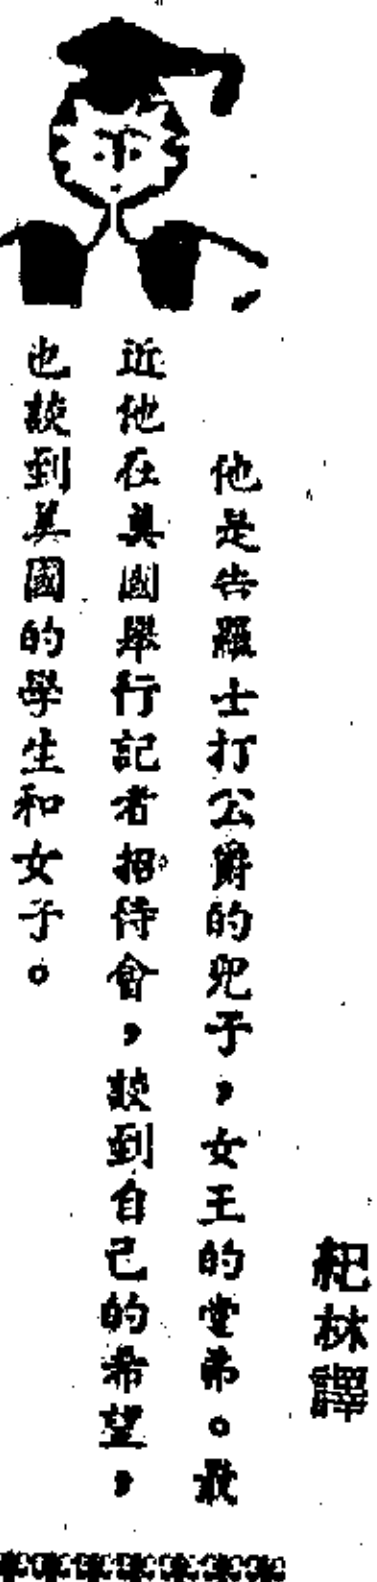 紀林譯
他是告羅士打公爵的兒子，女王的堂弟。最
近他在美國舉行記者招待會，談到自己的希望，
也談到美國的學生和女子。